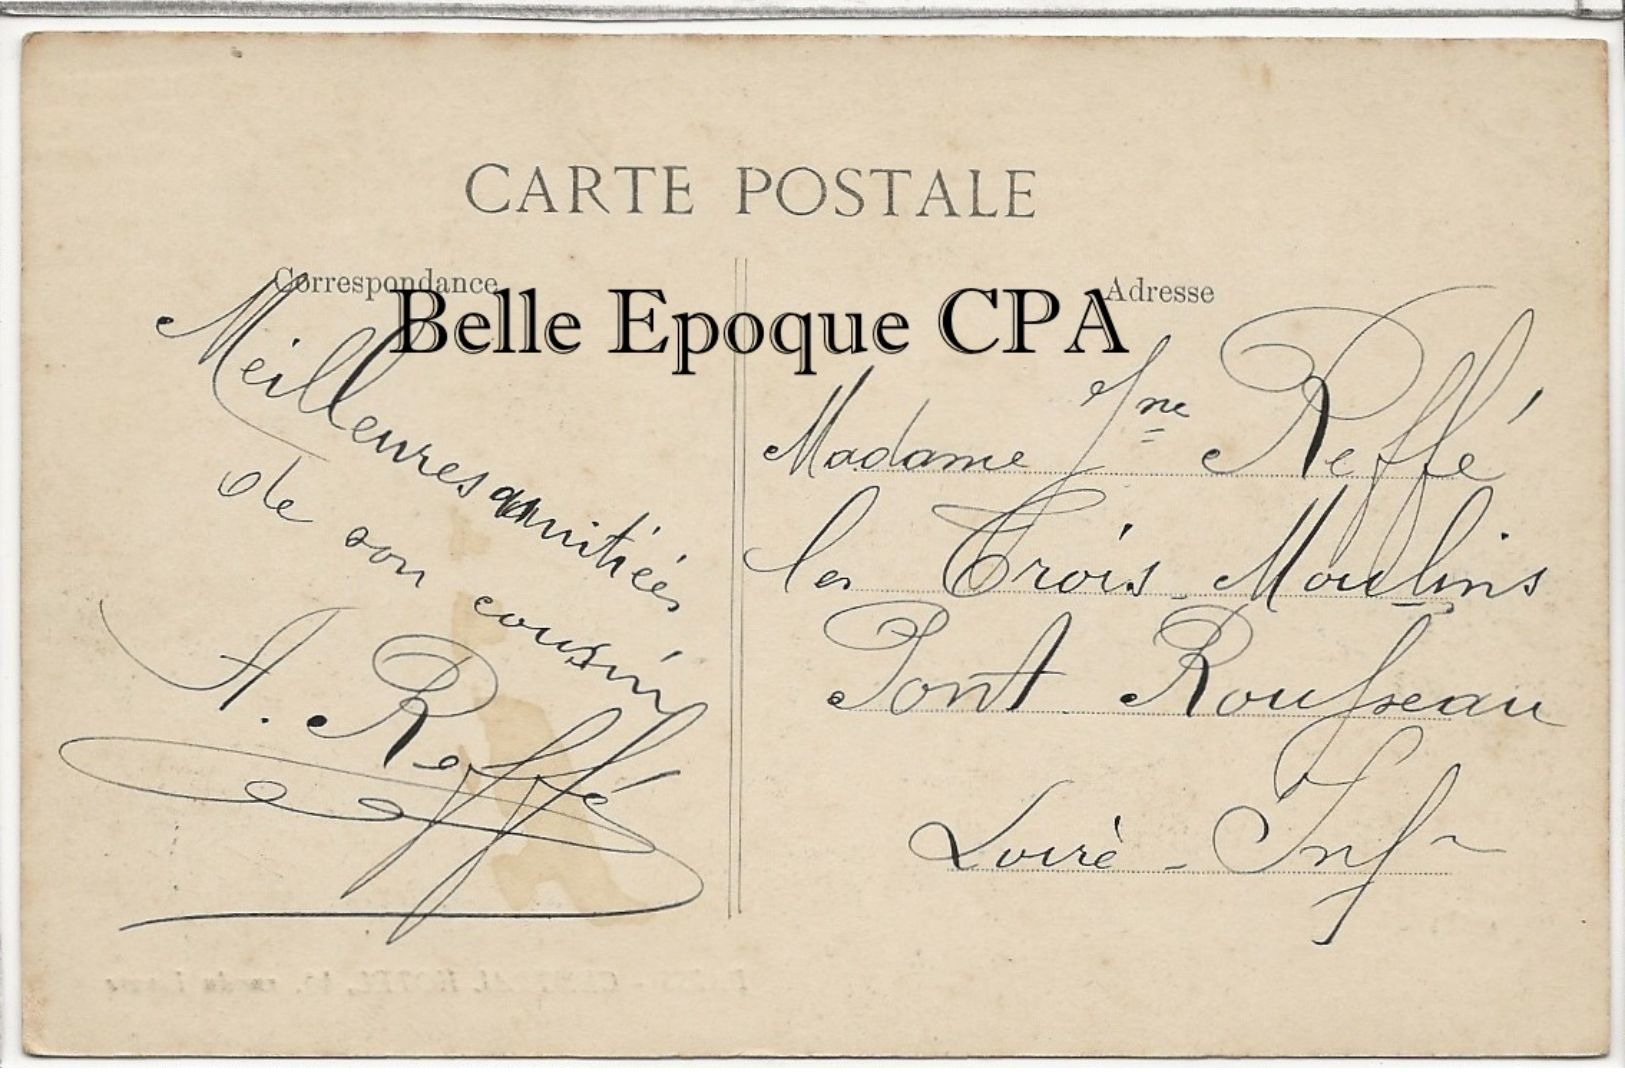 CARTE POSTALE
Correspondance
Adresse
Belle Epoque CPA
Meilleures amitiés
de son cousin
A. Reffé
Madame Jne Reffé
les Trois-Moulins
Pont Rousseau
Loire-Infre